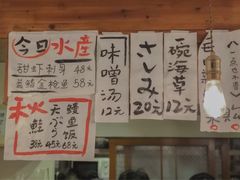 今日水産
甜虾刺身 48元
蓝鳍金枪 58元
秋
鮭 38元
天ぷら 45元
鰻鱼饭 68元
味噌汤 12元
さしみ 20元
一碗海草 12元